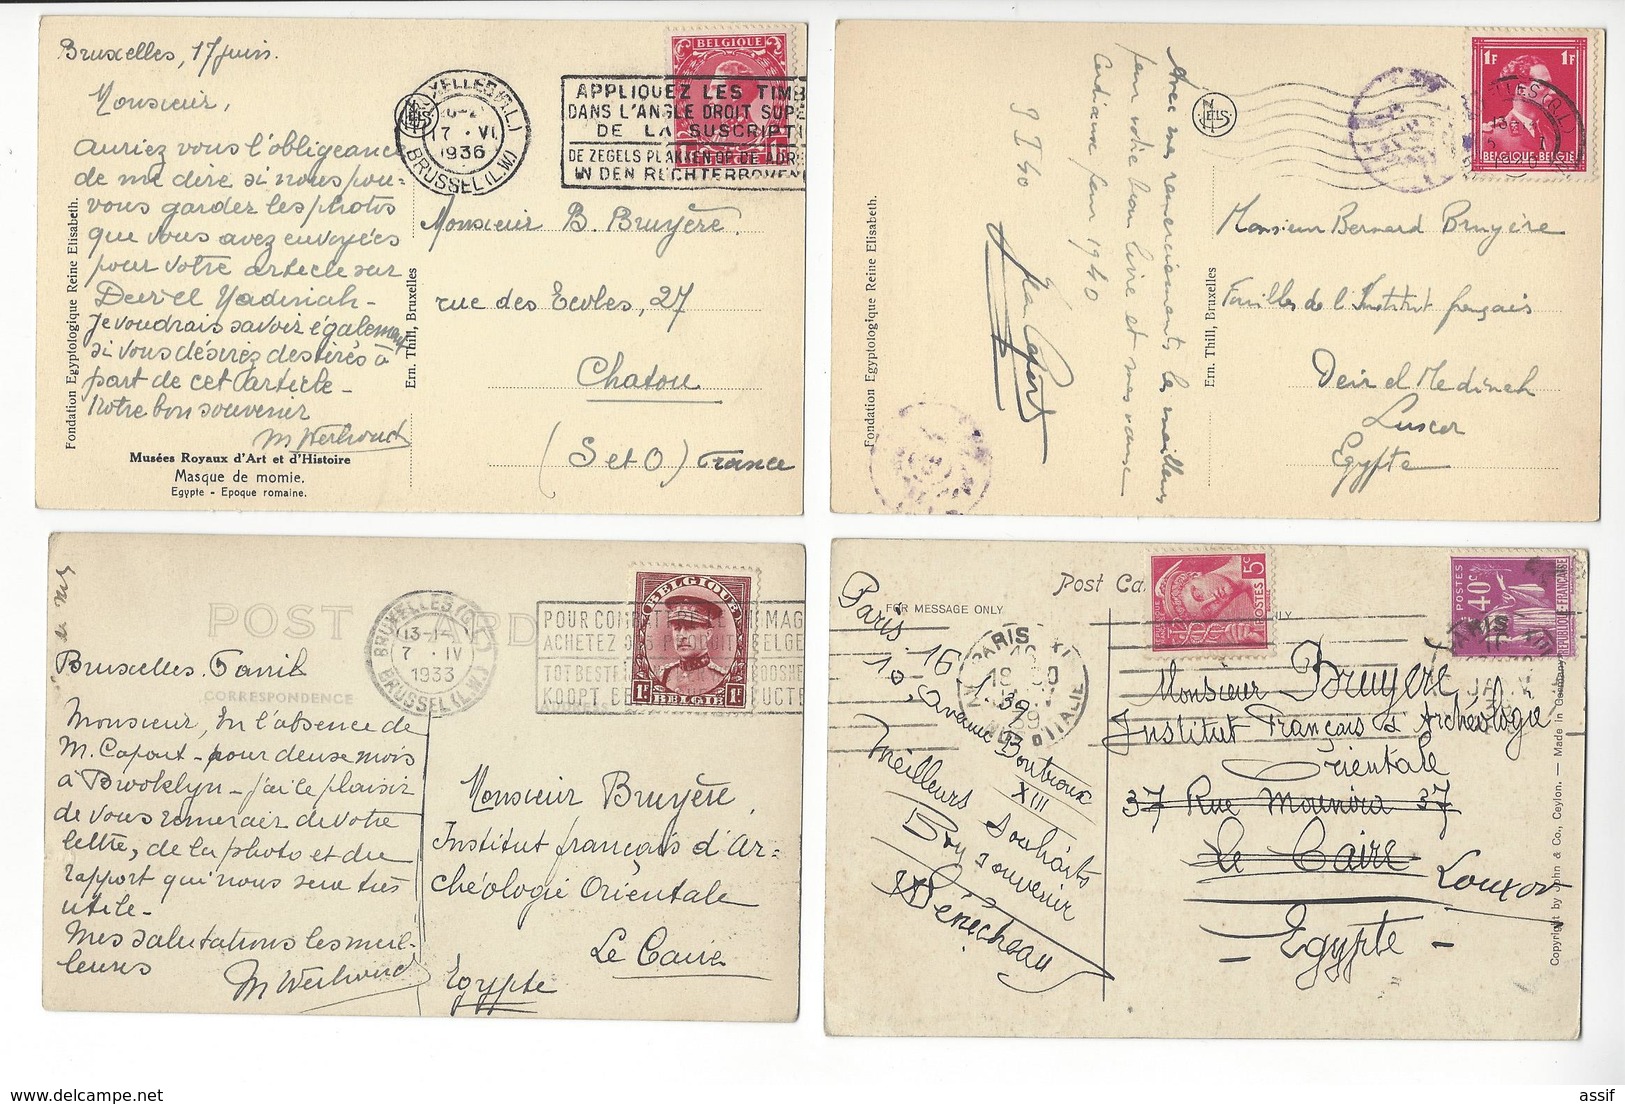 Bruxelles, 17 juin.
Monsieur,
Auriez vous l'obligeance
de me dire si nous pou-
vous garder les photos
que vous avez envoyées
pour votre article sur
Deir el Madinah -
Je voudrais savoir également
si vous désirez des tirés à
part de cet article -
Notre bon souvenir
M Werbrouck
Musées Royaux d'Art et d'Histoire
Masque de momie.
Egypte - Epoque romaine.
Fondation Egyptologique Reine Elisabeth.
Ern. Thill, Bruxelles
NELS
17 · VI
1936
BRUSSEL (L.W.)
BELGIQUE
APPLIQUEZ LES TIMB
DANS L'ANGLE DROIT SUPE
DE LA SUSCRIPTI
DE ZEGELS PLAKKEN OP DE ADR
IN DEN RECHTERBOVEN
Monsieur B. Bruyère.
rue des Ecoles, 27
Chatou
(S et O) France
Avec mes remerciements les meilleurs
pour votre bon livre et mes vœux
Cordiaux pour 1940
9 I 40
Jean Capart
Fondation Egyptologique Reine Elisabeth.
Ern. Thill, Bruxelles
NELS
1F 1F
BELGIQUE·BELGIË
Monsieur Bernard Bruyère
Fouilles de l'Institut français
Deir el Medineh
Luxor
Egypte
POST CARD
CORRESPONDENCE
Bruxelles. 7 avril
Monsieur, En l'absence de
M. Capart - pour deux mois
à Brooklyn - j'ai le plaisir
de vous remercier de votre
lettre, de la photo et du
rapport qui nous sera très
utile -
Mes salutations les meil-
leures
M Werbrouck
7 · IV
1933
BRUSSEL (L.W.)
BELGIQUE
1F 1F
BELGIE
POUR COMB
ACHETEZ DES PRODUITS BELGE
TOT BEST
KOOPT BE
Monsieur Bruyère
Institut français d'Ar-
chéologie Orientale
Le Caire
Egypte
Post Ca
FOR MESSAGE ONLY.
Paris 16 1 39
10, avenue Boutroux
XIII
Meilleurs souhaits
Bon souvenir
Bénécheau
PARIS XI
POSTES 5c
POSTES 40c
REPUBLIQUE FRANÇAISE
PARIS XIII
Monsieur Bruyère
Institut Français d'Archéologie
Orientale
37 Rue Mounira 37
Le Caire Louxor
Egypte -
Copyright by John & Co., Ceylon. — Made in Germany
assif